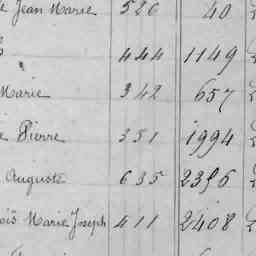 Jean Marie 526 40
444 1149
Marie 342 657
Pierre 351 1994
Auguste 635
Marie Joseph 411 2408